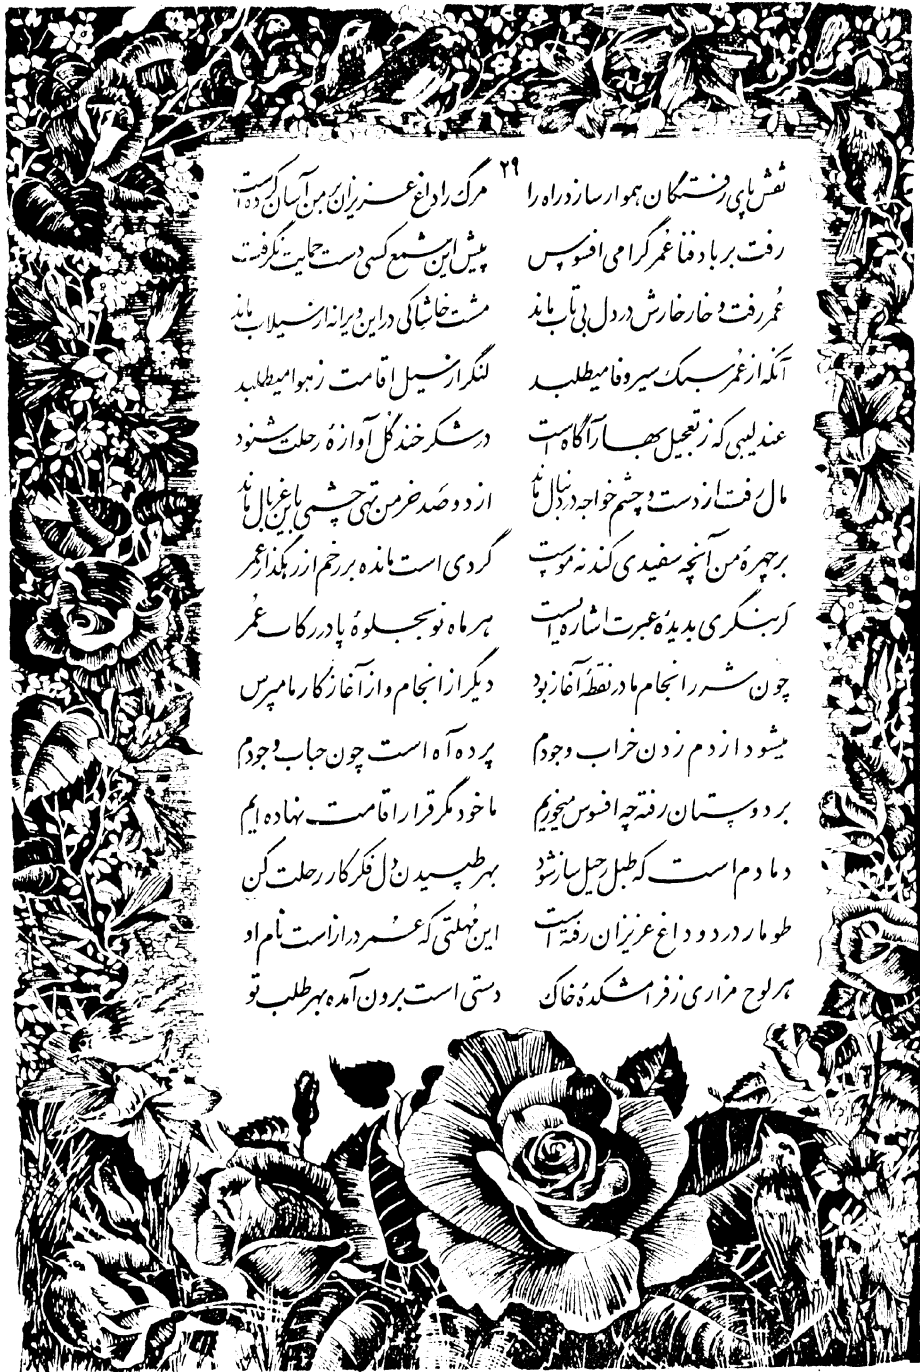 ۲۹
نقش پای رفتگان هموار سازد راه را مرگ را داغ عزیزان بر من آسان کرده است
رفت بر باد فنا عمر گرامی افسوس پیش این شمع کسی دست حمایت نگرفت
عمر رفت و خار خارش در دل بی تاب ماند مشت خاشاکی در این ویرانه از سیلاب ماند
آنکه از عمر سبک سیر وفا میطلبد لنگر از سیل اقامت ز هوا میطلبد
عندلیبی که ز تعجیل بهار آگاه است در شکر خند گل آوازهٔ رحلت شنود
مال رفت از دست و چشم خواجه در دنبال ماند از دو صد خرمن تهی چشمی باین غربال ماند
بر چهرهٔ من آنچه سفیدی کند نه موست گردی است مانده بر رخم از رهگذار عمر
گر بنگری بدیدهٔ عبرت اشاره ایست هر ماه نو بجلوهٔ پا در رکاب عمر
چون شرر انجام ما در نقطهٔ آغاز بود دیگر از انجام و از آغاز کار ما مپرس
میشود از دم زدن خراب وجودم پرده آه است چون حباب وجودم
بر دوستان رفته چه افسوس میخوریم ما خود مگر قرار اقامت نهاده ایم
دمادم است که طبل رحیل ساز شود بهر طپیدن دل فکر کار رحلت کن
طومار درد و داغ عزیزان رفته است این مهلتی که عمر دراز است نام او
هر لوح مزاری ز فرامشکدهٔ خاک دستی است برون آمده بهر طلب تو